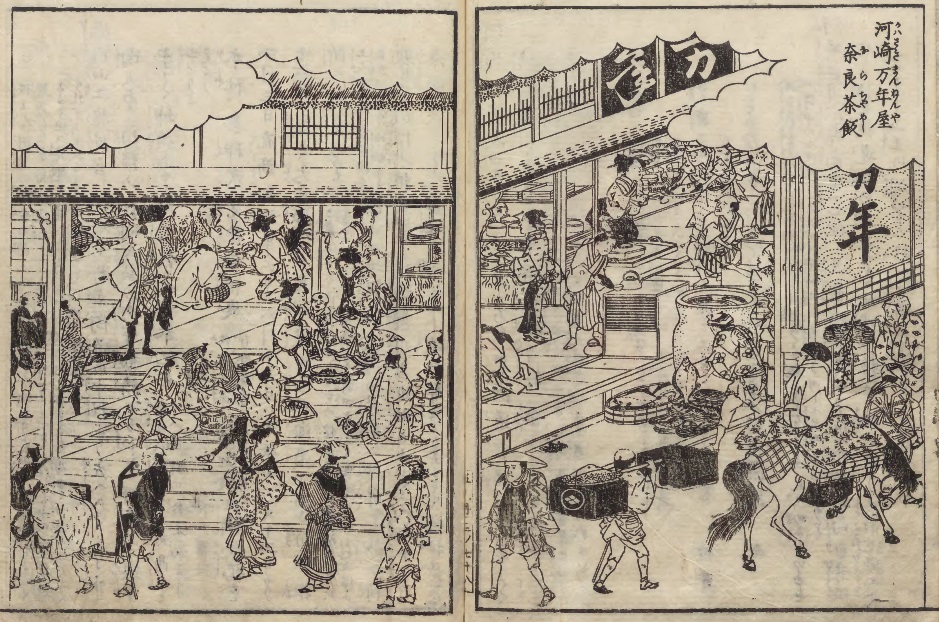 河崎万年屋
奈良茶飯
万年
万年